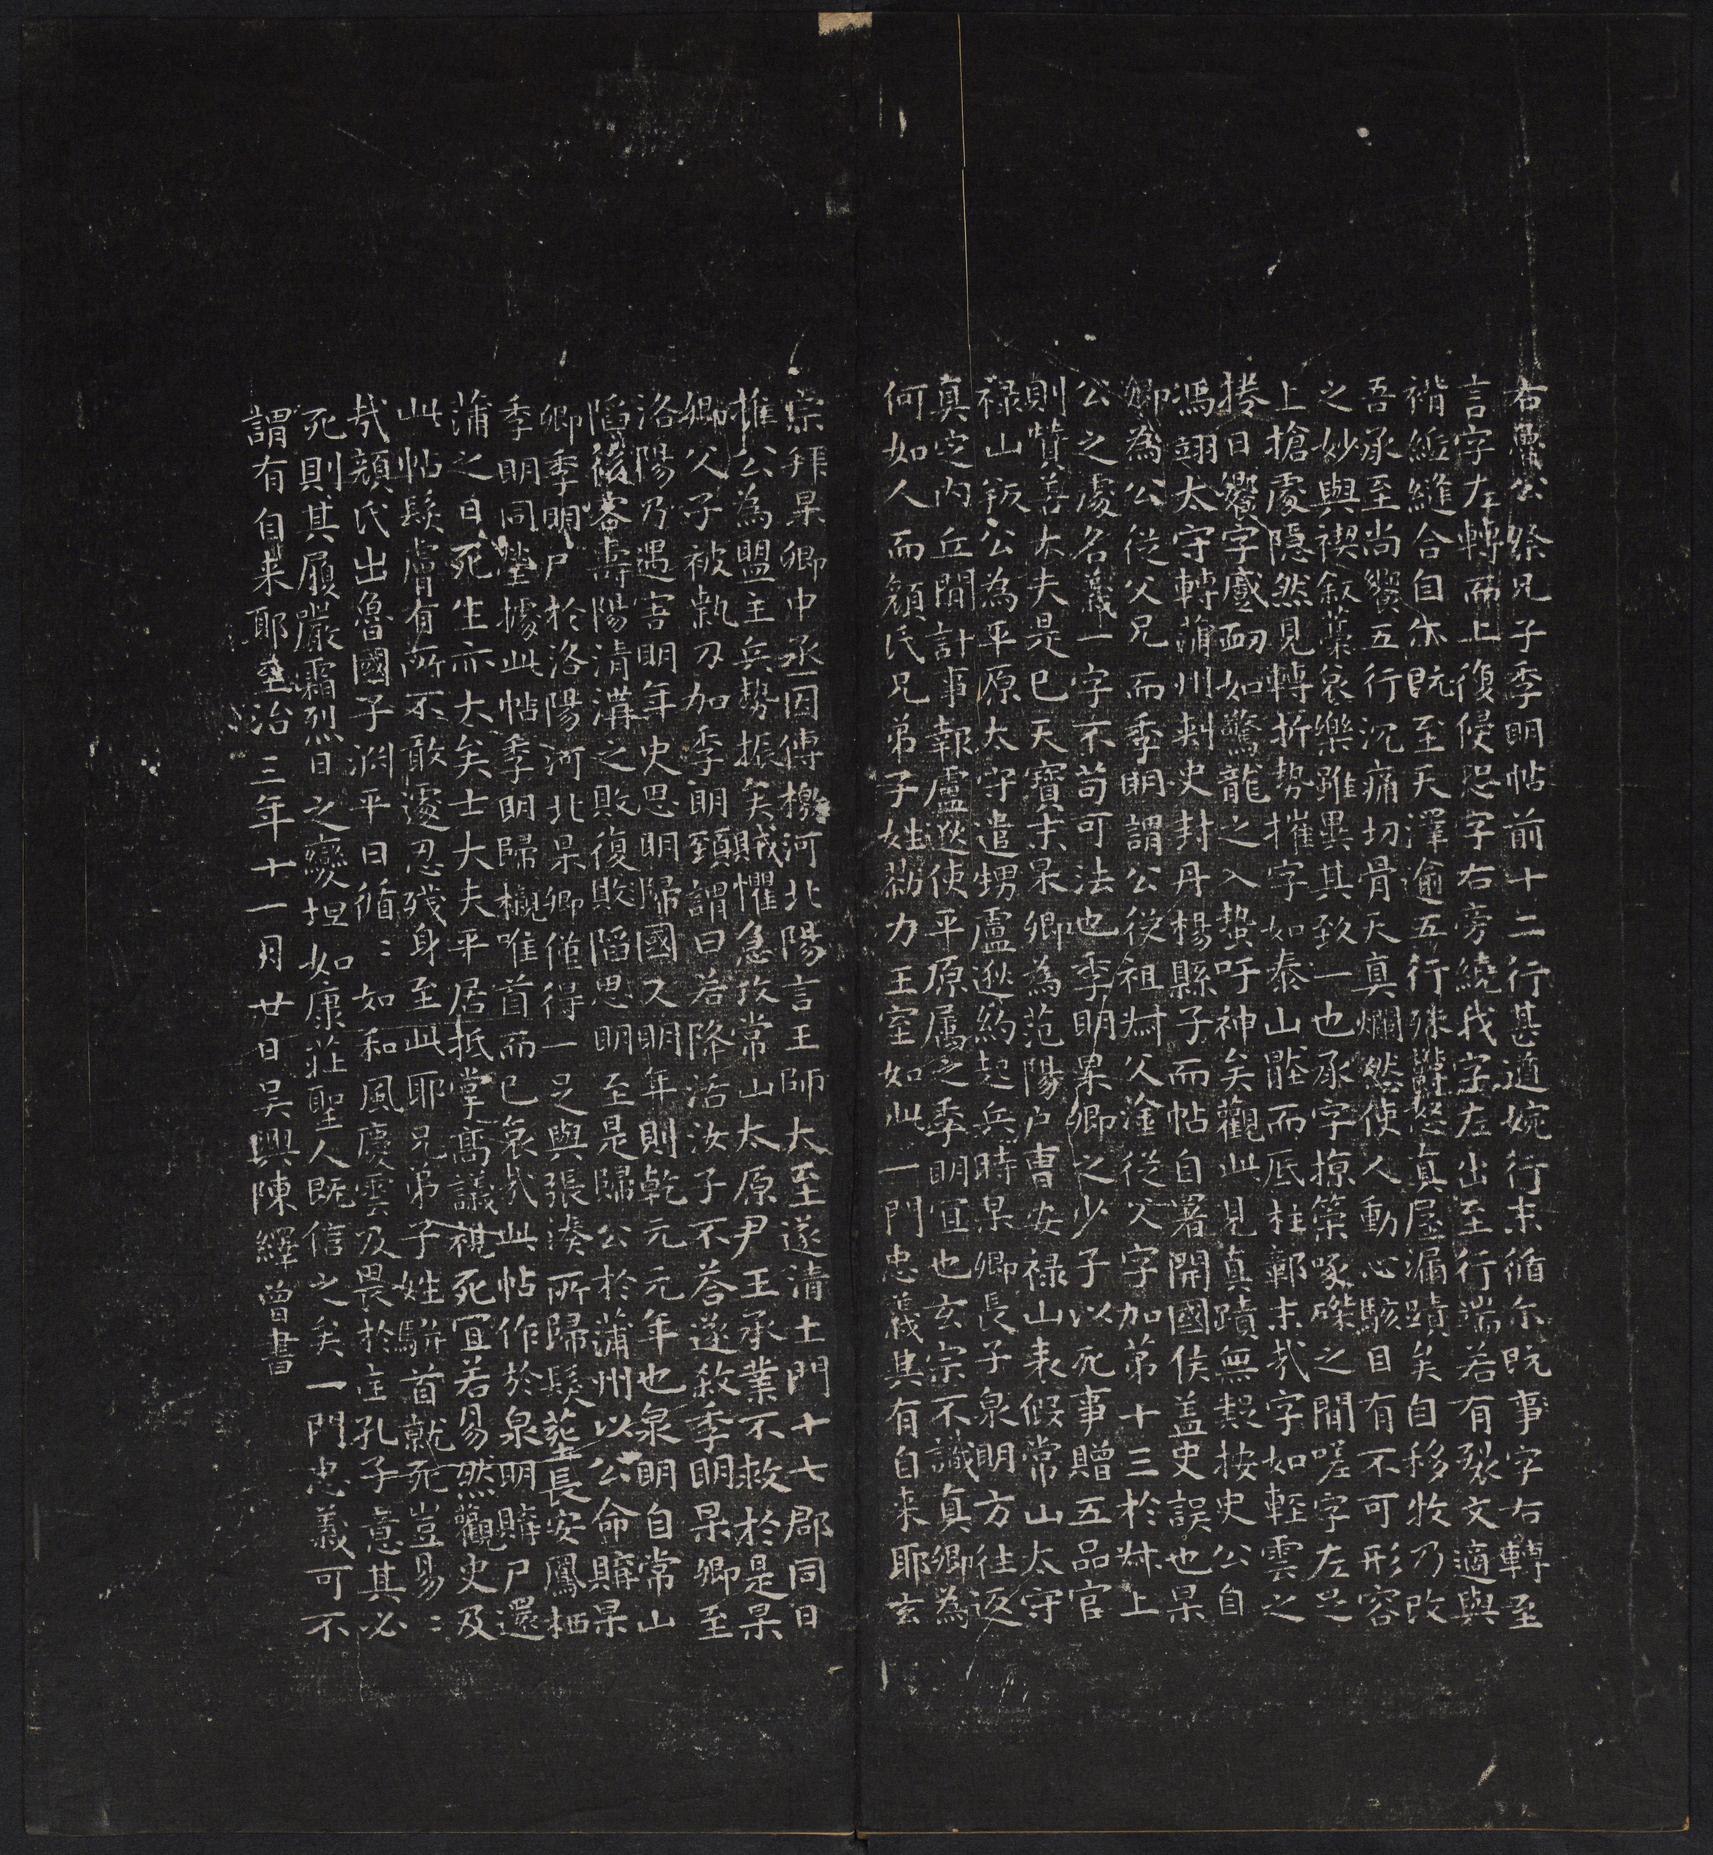 右魯公祭兄子季明帖前十二行甚遒婉行末循尓既事字右轉至
言字左轉而上復侵恐字右旁繞我字左出至行端若有裂文適與
褙紙縫合自尓既至天澤逾五行殊鬱怒真屋漏蹟矣自移牧乃改
吾承至尚饗五行沉痛切骨天真爛然使人動心駭目有不可形容
之妙與禊叙藁哀樂雖異其致一也承字掠策啄磔之間嗟字左足
上搶處隱然見轉折勢摧字如泰山壓而底柱鄣末哉字如輕雲之
捲日饗字蹙衂如驚龍之入蟄吁神矣觀此見真蹟無疑按史公自
馮翊太守轉蒲州刺史封丹楊縣子而帖自署開國侯蓋史誤也杲
卿為公從父兄而季明謂公從祖叔父淦從父字加第十三於叔上
公之處名義一字不苟可法也季明杲卿之少子以死事贈五品官
則贊善大夫是已天寶末杲卿為范陽戶曹安禄山表假常山太守
禄山叛公為平原太守遣甥盧逖約起兵時杲卿長子泉明方往返
真定內丘間計事報盧逖使平原屬之季明宜也玄宗不識真卿為
何如人而顏氏兄弟子姓勠力王室如此一門忠義其有自来耶玄
宗拜杲卿中丞因傳檄河北陽言王師太至遂清土門十七郡同日
推公為盟主兵勢振矣賊懼急攻常山太原尹王承業不救於是杲
卿父子被執刀加季明頸謂曰若降活汝子不荅遂殺季明杲卿至
洛陽乃遇害明年史思明歸國又明年則乾元元年也泉明自常山
陷後客壽陽清溝之敗復敗陷思明至是歸公於蒲州以公命購杲
卿季明尸於洛陽河北杲卿僅得一足與張湊所歸髮葬長安鳳栖
季明同塋據此帖季明歸櫬唯首而已哀哉此帖作於泉明購尸還
蒲之日死生亦大矣士大夫平居抵掌高議視死宜若易然觀史及
此帖髮膚有所不敢遽忍殘身至此耶兄弟子姓駢首就死豈易〻
哉顏氏出魯國子淵平日循〻如和風慶雲及畏於匡孔子意其必
死則其履嚴霜烈日之變坦如康莊聖人既信之矣一門忠義可不
謂有自来耶至治三年十一月廿日吴興陳繹曾書